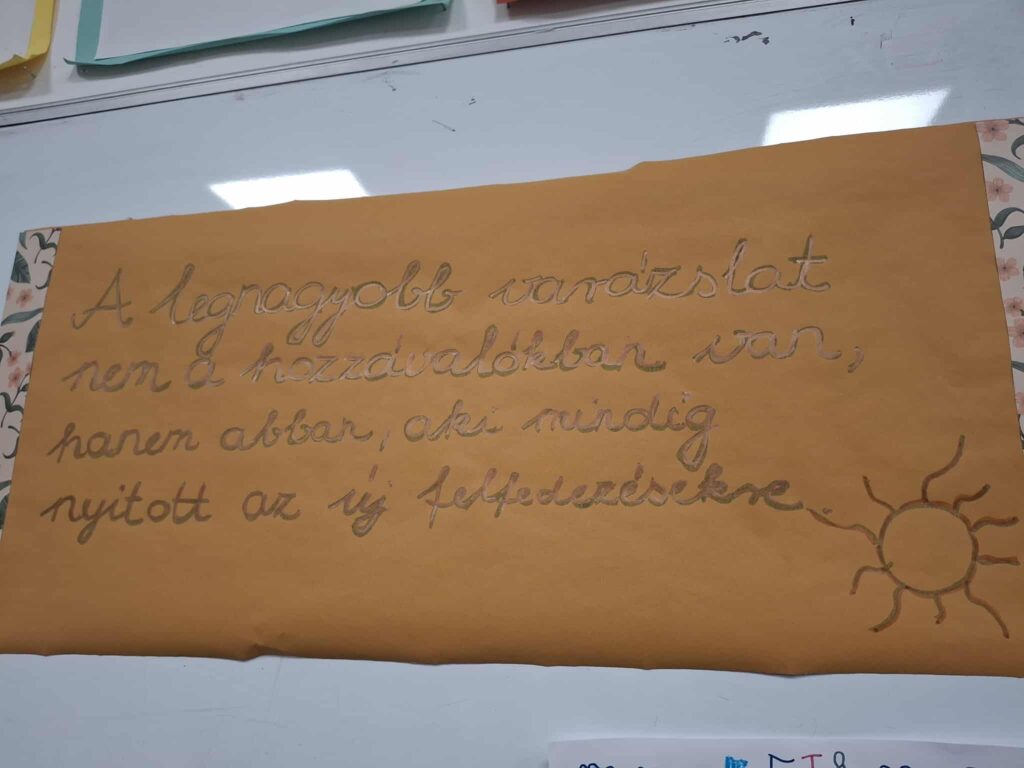 A legnagyobb varázslat
nem a hozzávalókban van,
hanem abban, aki mindig
nyitott az új felfedezésekre.